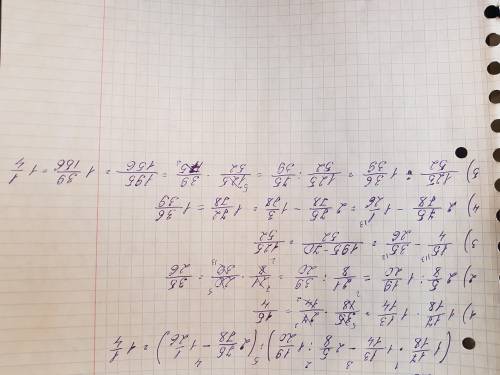 (1 17/18 · 1 13/14 − 2 5/8 : 1 19/20) : (2 75/78 − 1 1/26) = 1 1/4
1) 1 17/18 · 1 13/14 = 35/18 · 27/14 = 15/4
2) 2 5/8 : 1 19/20 = 21/8 : 39/20 = 21/8 · 20/39 = 35/26
3) 15/4 − 35/26 = 195-70/52 = 125/52
4) 2 75/78 − 1 1/26 = 2 75/78 − 1 3/78 = 1 72/78 = 1 36/39
5) 125/52 : 1 36/39 = 125/52 : 75/39 = 125/52 · 39/75 = 195/156 = 1 39/156 = 1 1/4